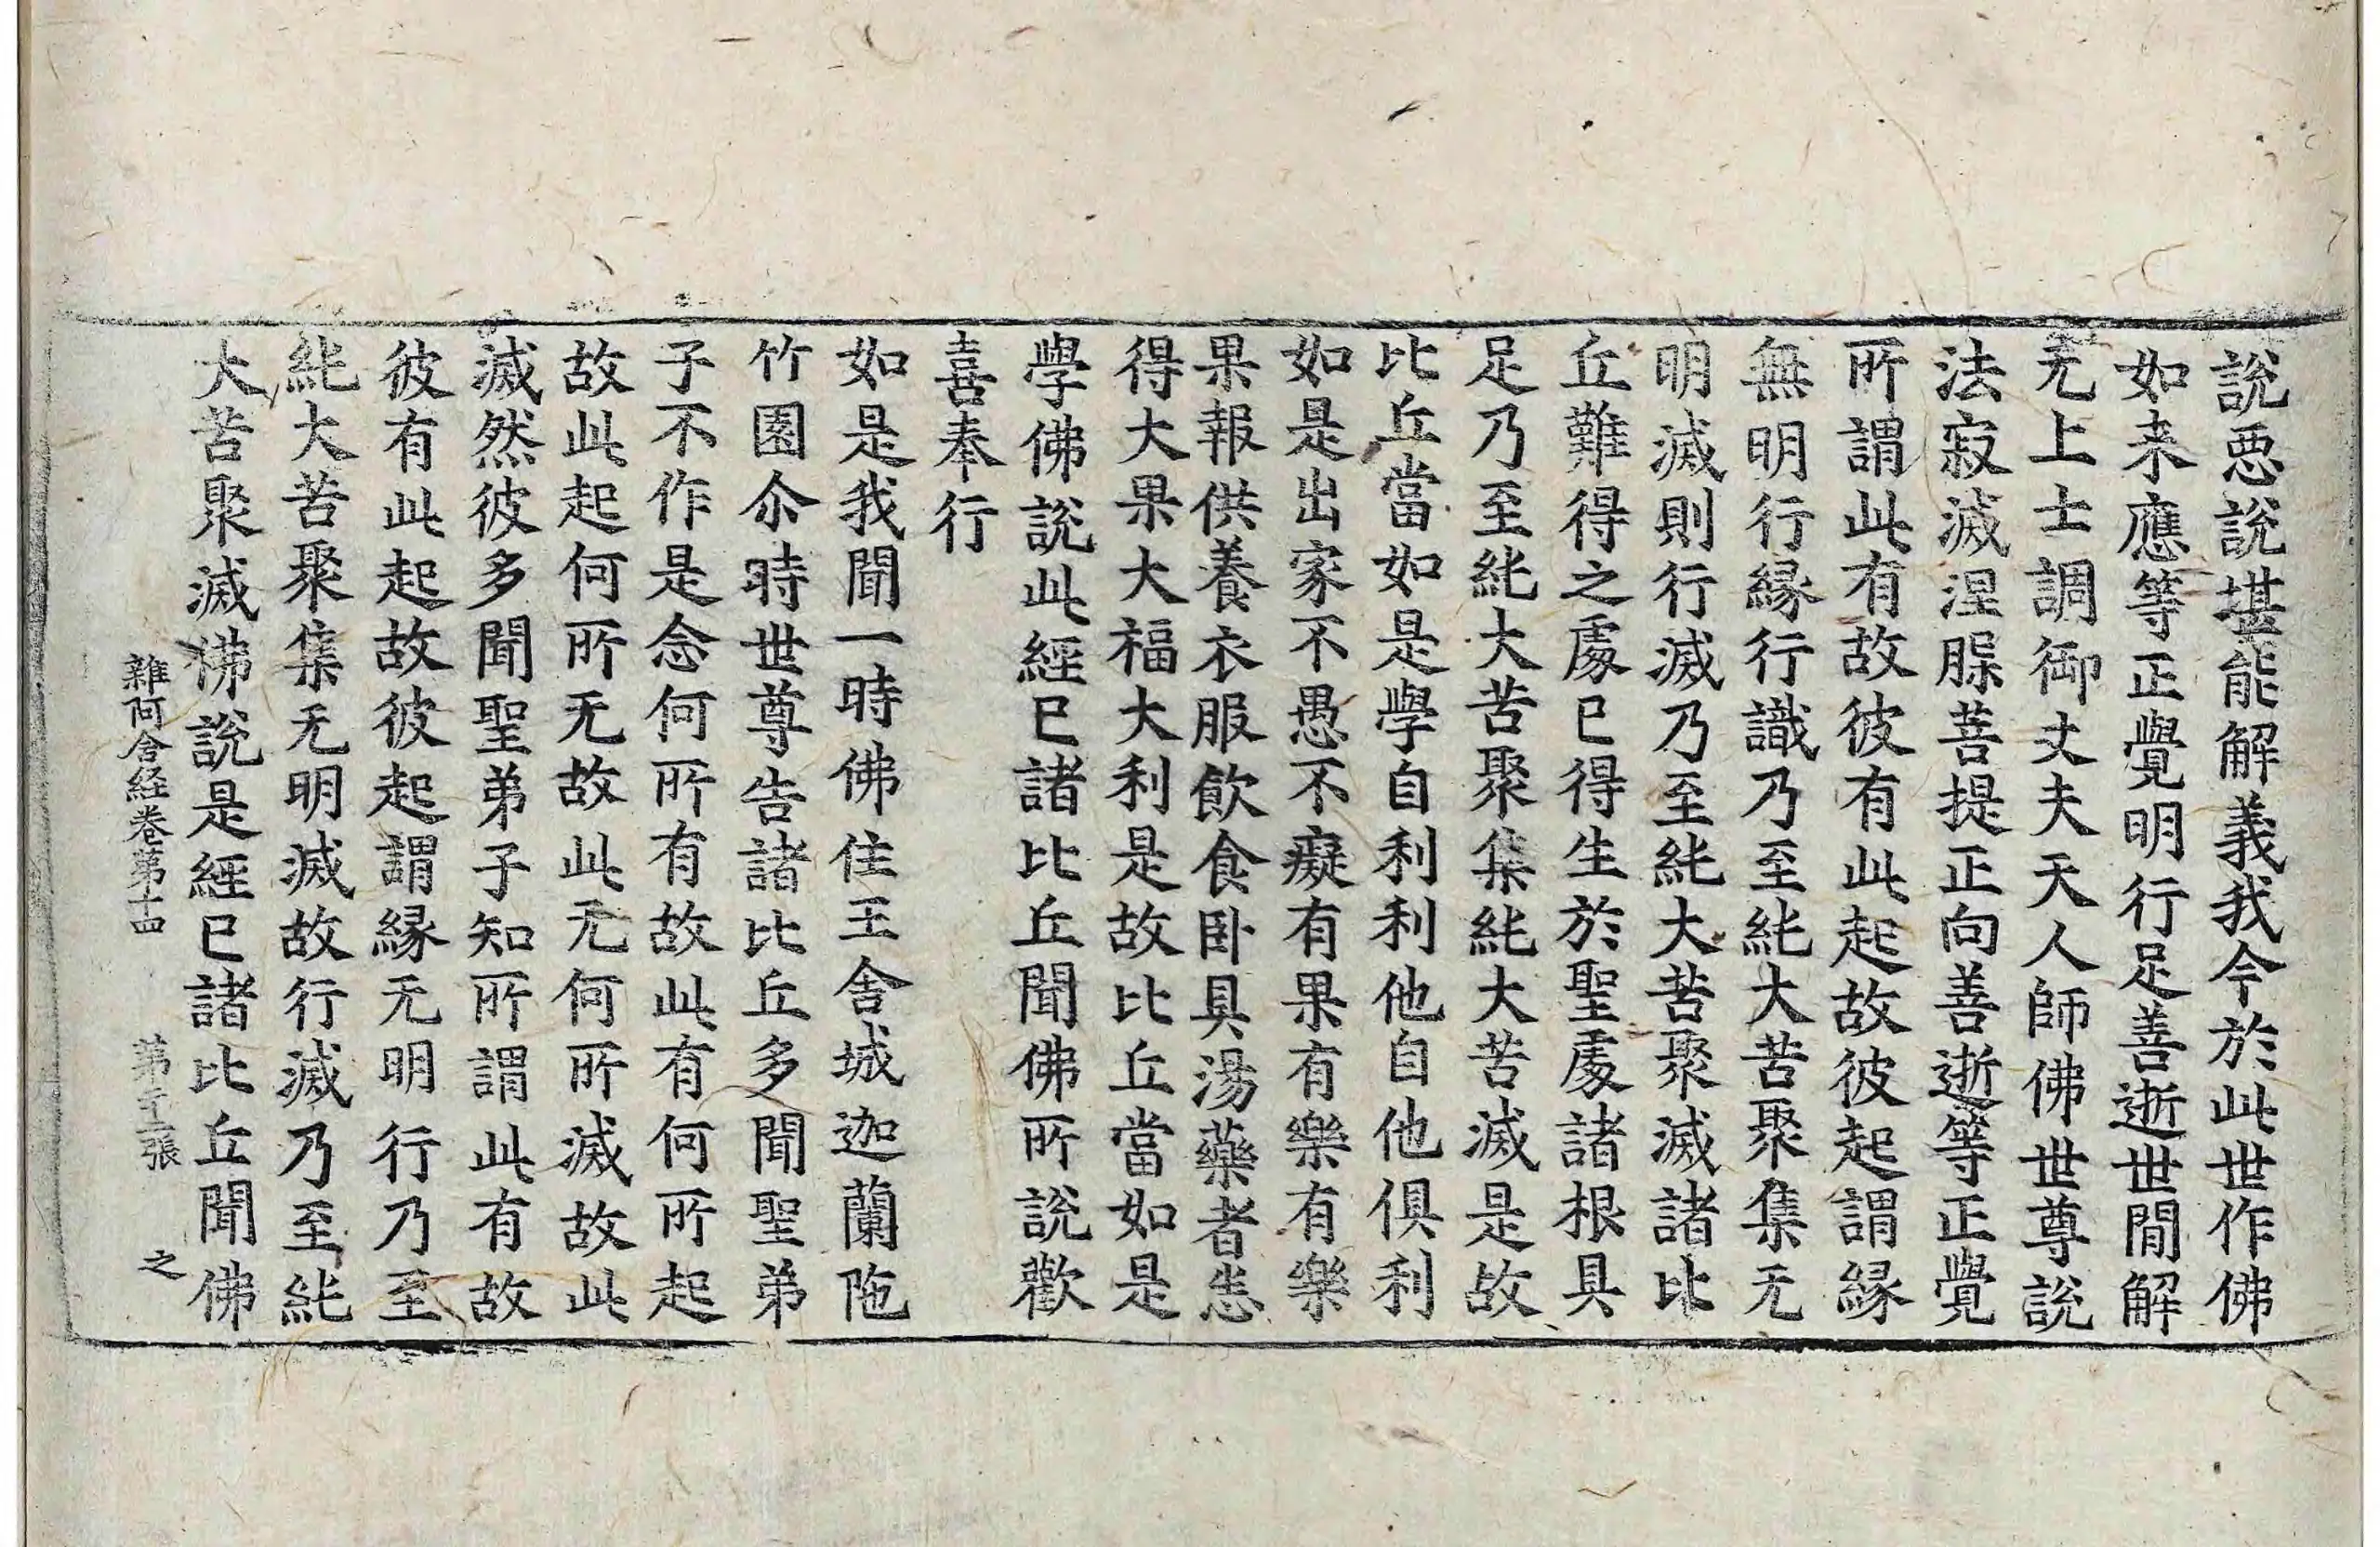 說惡說堪能解義我今於此世作佛
如来應等正覺明行足善逝世間解
无上士調御丈夫天人師佛世尊說
法寂滅涅𦘕菩提正向善逝等正覺
所謂此有故彼有此起故彼起謂緣
無明行緣行識乃至純大苦聚集无
明滅則行滅乃至純大苦聚滅諸比
丘難得之處已得生於聖處諸根具
足乃至純大苦聚集純大苦滅是故
比丘當如是學自利利他自他俱利
如是出家不愚不癡有果有樂有樂
果報供養衣服飲食卧具湯藥者悉
得大果大福大利是故比丘當如是
學佛說此經已諸比丘聞佛所說歡
喜奉行
如是我聞一時佛住王舍城迦蘭陁
竹園尒時世尊告諸比丘多聞聖弟
子不作是念何所有故此有何所起
故此起何所无故此无何所滅故此
滅然彼多聞聖弟子知所謂此有故
彼有此起故彼起謂緣无明行乃至
純大苦聚集无明滅故行滅乃至純
大苦聚滅佛說是經已諸比丘聞佛
雜阿含経卷第十四 第 張 之